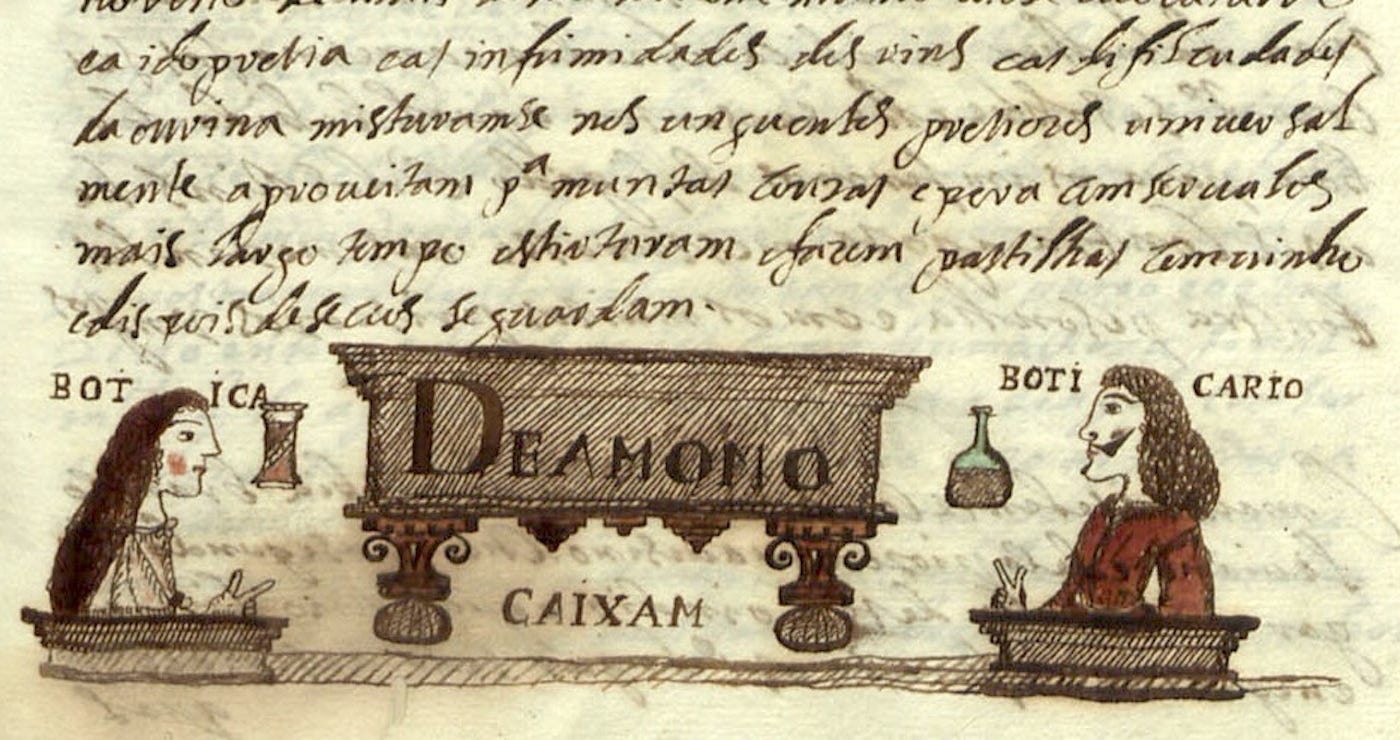 ea idopretia eas infirmidades des rins eas difilcudades
da ourina misturamse nos unguentos pretiores universal
mente aproveitam pª muntas couzas e pera comservalos
mais largo tempo estioturam e fazem pastilhas com vinho
e dis pois de secus se guardam.
BOTICA
DEAMOMO
BOTICARIO
CAIXAM